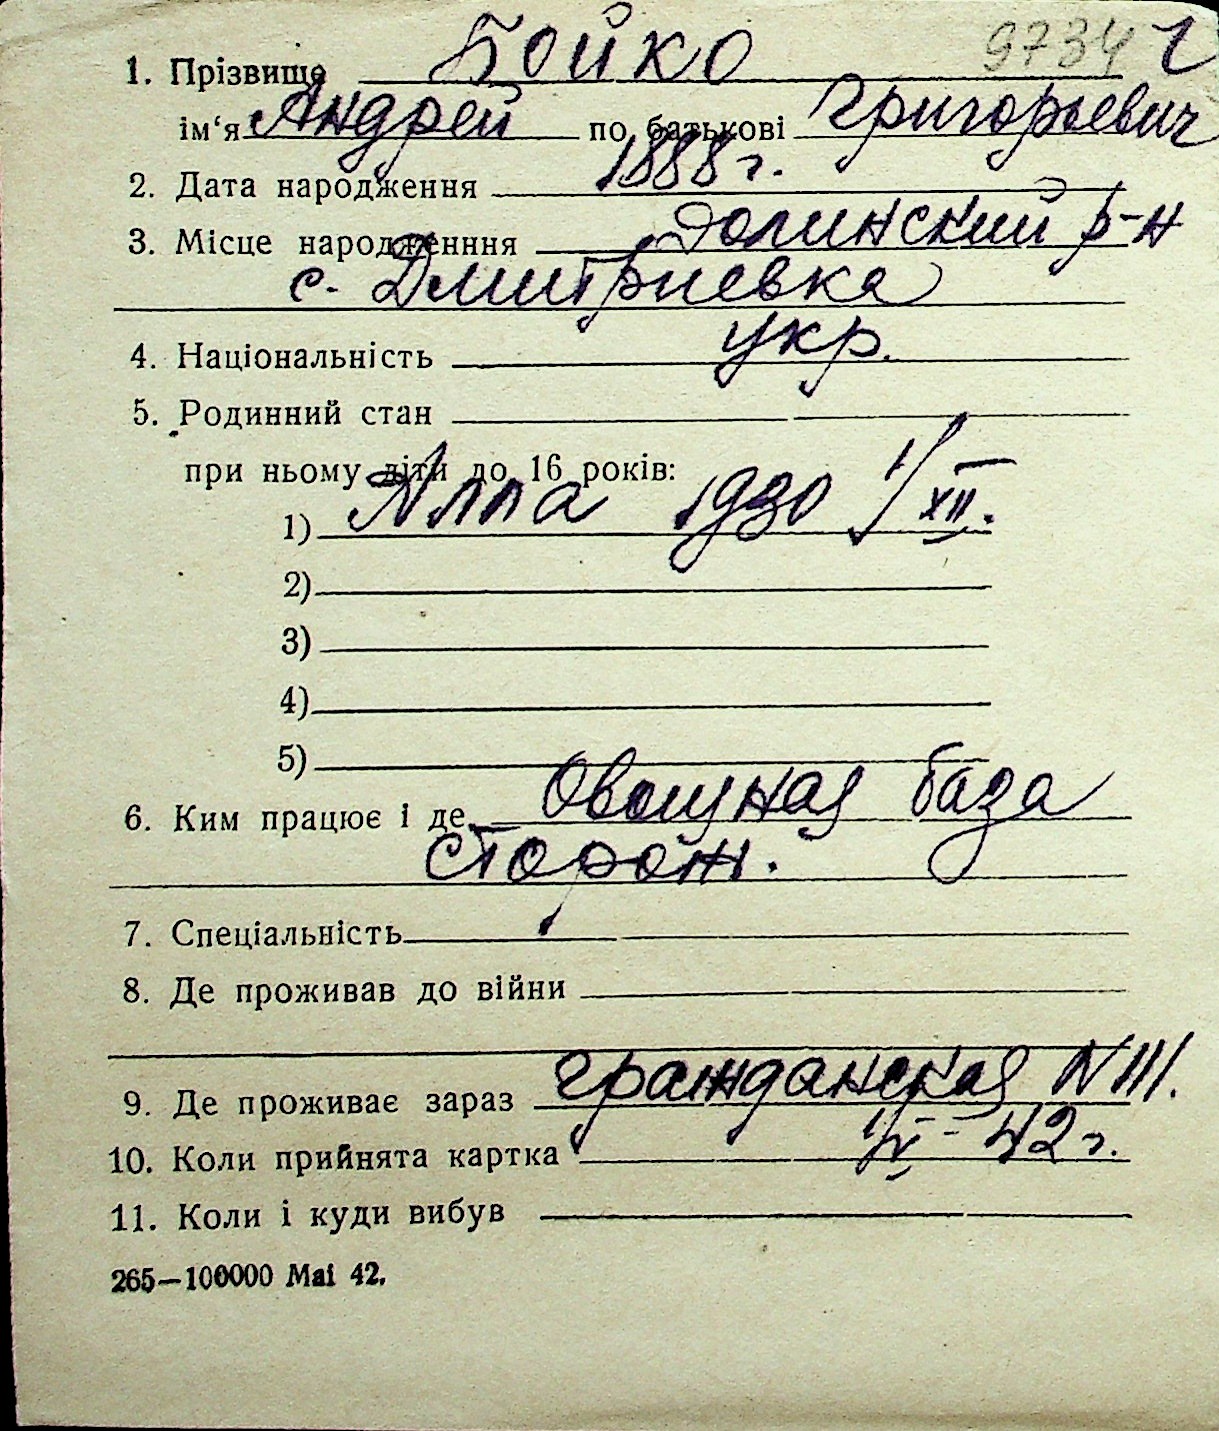 9734 г
1. Прізвище Бойко
ім‘я Андрей по батькові Григорьевич
2. Дата народження 1888 г.
3. Місце народженння Долинский р-н
с. Дмитриевка
4. Національність укр.
5. Родинний стан
при ньому діти до 16 років:
1) Алла 1930 1/XII.
2)
3)
4)
5)
6. Ким працює і де Овощная база
Сторож.
7. Спеціальність
8. Де проживав до війни
9. Де проживає зараз Гражданская N 111.
10. Коли прийнята картка 42 г.
11. Коли і куди вибув
265—100000 Mai 42.